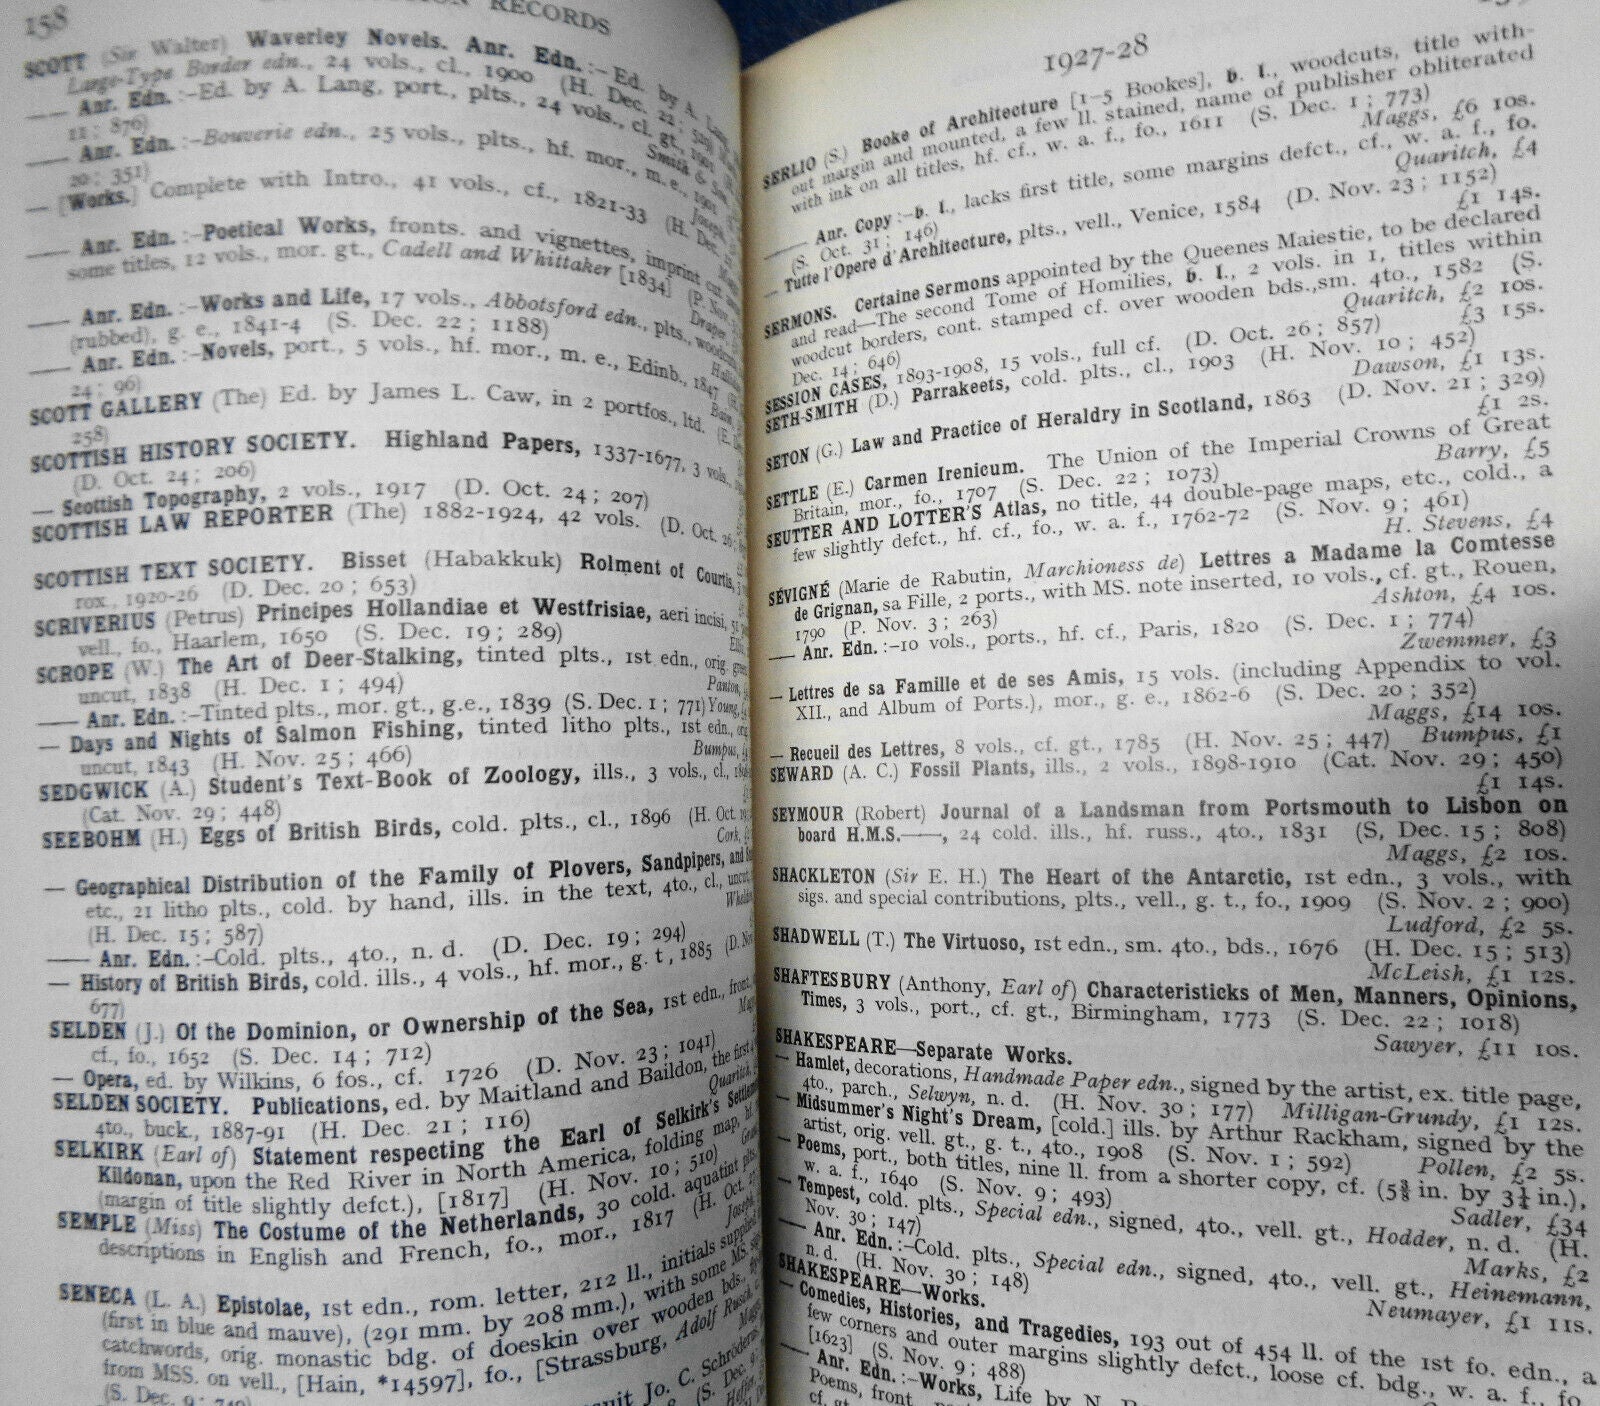 158
RECORDS
SCOTT (Sir Walter) Waverley Novels. Anr. Edn.:-Ed. by A.
Large-Type Border edn., 24 vols., cl., 1900 (H. Dec. 22;
—— Anr. Edn.:-Ed. by A. Lang, port., plts., 24 vols., cl. gt., 1901
11; 876)
—— Anr. Edn.:-Bouverie edn., 25 vols., plts., hf. mor., m. e., 1901
20; 351)
— [Works.] Complete with Intro., 41 vols., cf., 1821-33 (H. Dec.
—— Anr. Edn.:-Poetical Works, fronts. and vignettes, imprint cut
some titles, 12 vols., mor. gt., Cadell and Whittaker [1834] (P. Nov.
—— Anr. Edn.:-Works and Life, 17 vols., Abbotsford edn., plts.,
(rubbed), g. e., 1841-4 (S. Dec. 22; 1188)
—— Anr. Edn.:-Novels, port., 5 vols., hf. mor., m. e., Edinb., 1847
24; 96)
SCOTT GALLERY (The) Ed. by James L. Caw, in 2 portfos., ltd.
258)
SCOTTISH HISTORY SOCIETY. Highland Papers, 1337-1677, 3 vols.,
(D. Oct. 24; 206)
— Scottish Topography, 2 vols., 1917 (D. Oct. 24; 207)
SCOTTISH LAW REPORTER (The) 1882-1924, 42 vols. (D. Oct. 26;
SCOTTISH TEXT SOCIETY. Bisset (Habakkuk) Rolment of Courtis,
rox., 1920-26 (D. Dec. 20; 653)
SCRIVERIUS (Petrus) Principes Hollandiae et Westfrisiae, aeri incisi,
vell., fo., Haarlem, 1650 (S. Dec. 19; 289)
SCROPE (W.) The Art of Deer-Stalking, tinted plts., 1st edn., orig.
uncut, 1838 (H. Dec. 1; 494) Panton,
—— Anr. Edn.:-Tinted plts., mor. gt., g.e., 1839 (S. Dec. 1; 771) Young,
— Days and Nights of Salmon Fishing, tinted litho plts., 1st edn.,
uncut, 1843 (H. Nov. 25; 466) Bumpus,
SEDGWICK (A.) Student's Text-Book of Zoology, ills., 3 vols., cl.,
(Cat. Nov. 29; 448)
SEEBOHM (H.) Eggs of British Birds, cold. plts., cl., 1896 (H. Oct.
Cork,
— Geographical Distribution of the Family of Plovers, Sandpipers, and
etc., 21 litho plts., cold. by hand, ills. in the text, 4to., cl., uncut,
(H. Dec. 15; 587)
—— Anr. Edn.:-Cold. plts., 4to., n. d. (D. Dec. 19; 294)
— History of British Birds, cold. ills., 4 vols., hf. mor., g. t., 1885 (D. Nov.
677)
SELDEN (J.) Of the Dominion, or Ownership of the Sea, 1st edn., front.,
cf., fo., 1652 (S. Dec. 14; 712)
— Opera, ed. by Wilkins, 6 fos., cf. 1726 (D. Nov. 23; 1041)
SELDEN SOCIETY. Publications, ed. by Maitland and Baildon, the first
4to., buck., 1887-91 (H. Dec. 21; 116) Quaritch,
SELKIRK (Earl of) Statement respecting the Earl of Selkirk's
Kildonan, upon the Red River in North America, folding map, hf.
(margin of title slightly defct.), [1817] (H. Nov. 10; 510)
SEMPLE (Miss) The Costume of the Netherlands, 30 cold. aquatint plts.,
descriptions in English and French, fo., mor., 1817 (H. Oct.
SENECA (L. A.) Epistolae, 1st edn., rom. letter, 212 ll., initials supplied
(first in blue and mauve), (291 mm. by 208 mm.), with some MS.
catchwords, orig. monastic bdg. of doeskin over wooden bds.,
from MSS. on vell., [Hain, *14597], fo., [Strassburg, Adolf Rusch,
(S. Dec. 9; 740)
1927-28
SERLIO (S.) Booke of Architecture [1-5 Bookes], b. l., woodcuts, title with-
out margin and mounted, a few ll. stained, name of publisher obliterated
with ink on all titles, hf. cf., w. a. f., fo., 1611 (S. Dec. 1; 773)
Maggs, £6 10s.
—— Anr. Copy:-b. l., lacks first title, some margins defct., cf., w. a. f., fo.
(S. Oct. 31; 146) Quaritch, £4
— Tutte l'Opere d'Architecture, plts., vell., Venice, 1584 (D. Nov. 23; 1152)
£1 14s.
SERMONS. Certaine Sermons appointed by the Queenes Maiestie, to be declared
and read—The second Tome of Homilies, b. l., 2 vols. in 1, titles within
woodcut borders, cont. stamped cf. over wooden bds., sm. 4to., 1582 (S.
Dec. 14; 646) Quaritch, £2 10s.
SESSION CASES, 1893-1908, 15 vols., full cf. (D. Oct. 26; 857) £3 15s.
SETH-SMITH (D.) Parrakeets, cold. plts., cl., 1903 (H. Nov. 10; 452)
Dawson, £1 13s.
SETON (G.) Law and Practice of Heraldry in Scotland, 1863 (D. Nov. 21; 329)
£1 2s.
SETTLE (E.) Carmen Irenicum. The Union of the Imperial Crowns of Great
Britain, mor., fo., 1707 (S. Dec. 22; 1073) Barry, £5
SEUTTER AND LOTTER'S Atlas, no title, 44 double-page maps, etc., cold., a
few slightly defct., hf. cf., fo., w. a. f., 1762-72 (S. Nov. 9; 461)
H. Stevens, £4
SÉVIGNÉ (Marie de Rabutin, Marchioness de) Lettres a Madame la Comtesse
de Grignan, sa Fille, 2 ports., with MS. note inserted, 10 vols., cf. gt., Rouen,
1790 (P. Nov. 3; 263) Ashton, £4 10s.
—— Anr. Edn.:-10 vols., ports., hf. cf., Paris, 1820 (S. Dec. 1; 774)
Zwemmer, £3
— Lettres de sa Famille et de ses Amis, 15 vols. (including Appendix to vol.
XII., and Album of Ports.), mor., g. e., 1862-6 (S. Dec. 20; 352)
Maggs, £14 10s.
— Recueil des Lettres, 8 vols., cf. gt., 1785 (H. Nov. 25; 447) Bumpus, £1
SEWARD (A. C.) Fossil Plants, ills., 2 vols., 1898-1910 (Cat. Nov. 29; 450)
£1 14s.
SEYMOUR (Robert) Journal of a Landsman from Portsmouth to Lisbon on
board H.M.S.——, 24 cold. ills., hf. russ., 4to., 1831 (S, Dec. 15; 808)
Maggs, £2 10s.
SHACKLETON (Sir E. H.) The Heart of the Antarctic, 1st edn., 3 vols., with
sigs. and special contributions, plts., vell., g. t., fo., 1909 (S. Nov. 2; 900)
Ludford, £2 5s.
SHADWELL (T.) The Virtuoso, 1st edn., sm. 4to., bds., 1676 (H. Dec. 15; 513)
McLeish, £1 12s.
SHAFTESBURY (Anthony, Earl of) Characteristicks of Men, Manners, Opinions,
Times, 3 vols., port., cf. gt., Birmingham, 1773 (S. Dec. 22; 1018)
Sawyer, £11 10s.
SHAKESPEARE—Separate Works.
— Hamlet, decorations, Handmade Paper edn., signed by the artist, ex. title page,
4to., parch., Selwyn, n. d. (H. Nov. 30; 177) Milligan-Grundy, £1 12s.
— Midsummer's Night's Dream, [cold.] ills. by Arthur Rackham, signed by the
artist, orig. vell. gt., g. t., 4to., 1908 (S. Nov. 1; 592) Pollen, £2 5s.
— Poems, port., both titles, nine ll. from a shorter copy, cf. (5⅜ in. by 3¼ in.),
w. a. f., 1640 (S. Nov. 9; 493) Sadler, £34
— Tempest, cold. plts., Special edn., signed, 4to., vell. gt., Hodder, n. d. (H.
Nov. 30; 147) Marks, £2
—— Anr. Edn.:-Cold. plts., Special edn., signed, 4to., vell. gt., Heinemann,
n. d. (H. Nov. 30; 148) Neumayer, £1 11s.
SHAKESPEARE—Works.
— Comedies, Histories, and Tragedies, 193 out of 454 ll. of the 1st fo. edn., a
few corners and outer margins slightly defct., loose cf. bdg., w. a. f., fo.
[1623] (S. Nov. 9; 488)
—— Anr. Edn.:-Works, Life by N.
Poems, front.
cf. gt.